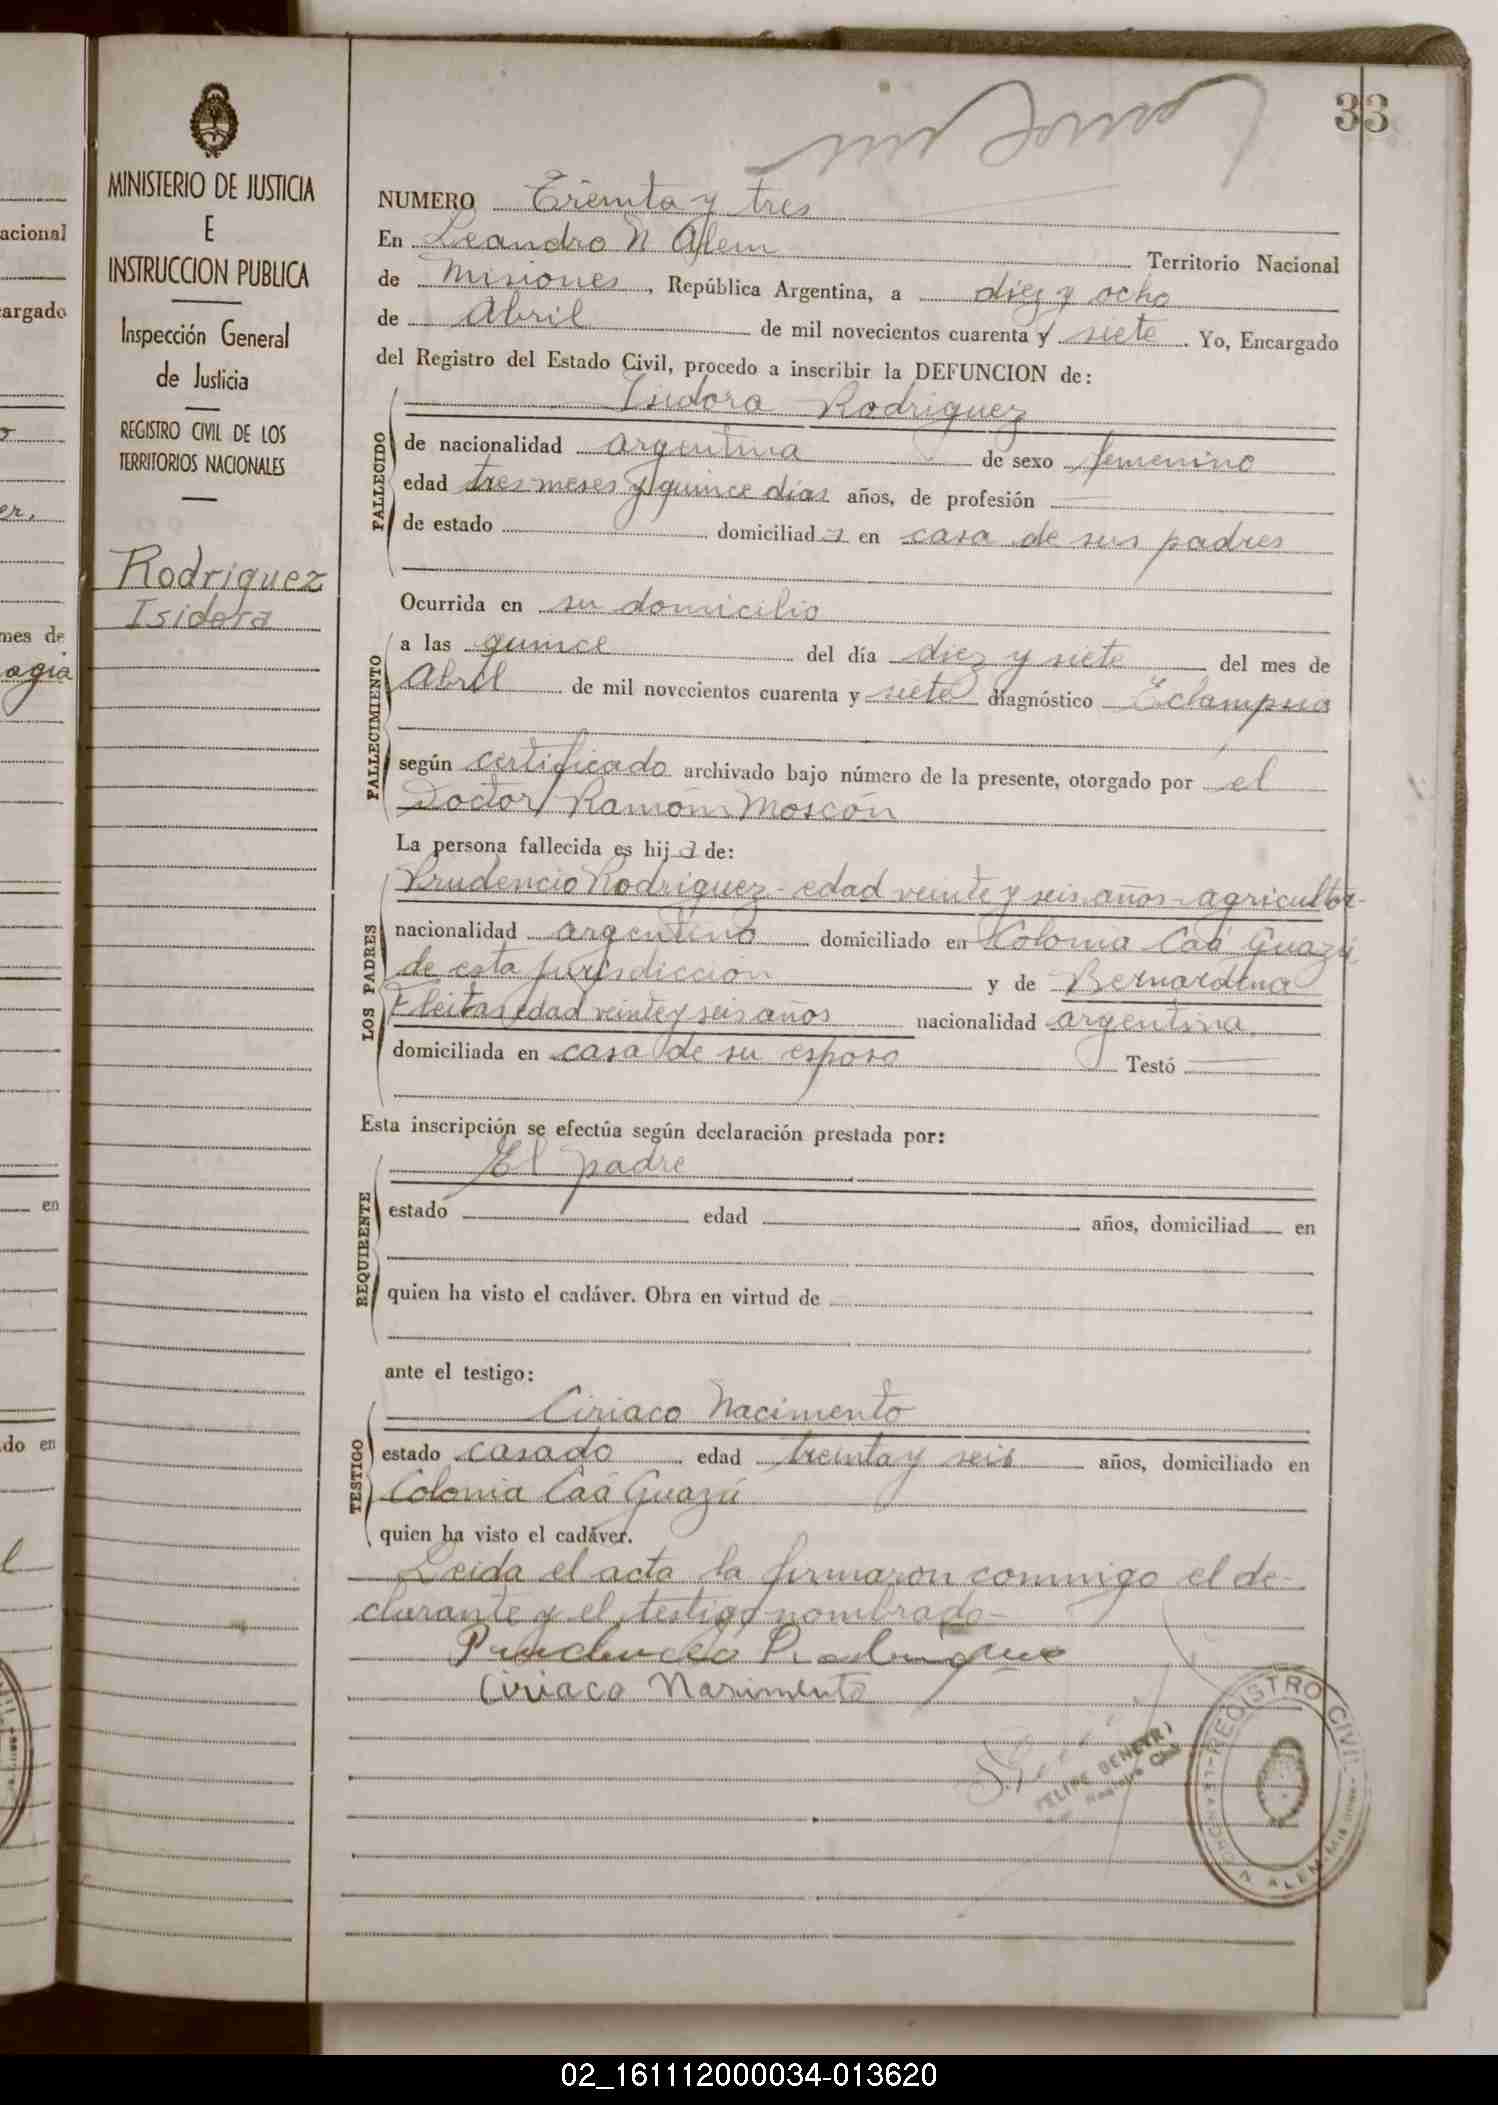 33
MINISTERIO DE JUSTICIA
E
INSTRUCCION PUBLICA
Inspección General
de Justicia
REGISTRO CIVIL DE LOS
TERRITORIOS NACIONALES
Rodriguez
Isidora
NUMERO Treinta y tres
En Leandro N Alem Territorio Nacional
de Misiones, República Argentina, a diez y ocho
de Abril de mil novecientos cuarenta y siete. Yo, Encargado
del Registro del Estado Civil, procedo a inscribir la DEFUNCION de:
Isidora Rodriguez
FALLECIDO
de nacionalidad argentina de sexo femenino
edad tres meses y quince dias años, de profesión
de estado domiciliada en casa de sus padres
Ocurrida en su domicilio
FALLECIMIENTO
a las quince del día diez y siete del mes de
Abril de mil novecientos cuarenta y siete diagnóstico Eclampsia
según certificado archivado bajo número de la presente, otorgado por el
Doctor Ramón Moscón
La persona fallecida es hija de:
LOS PADRES
Prudencio Rodriguez - edad veinte y seis años - agricultor-
nacionalidad argentino domiciliado en Colonia Caá Guazú
de esta jurisdicción y de Bernardina
Fleitas edad veinte y seis años nacionalidad argentina
domiciliada en casa de su esposo Testó
Esta inscripción se efectúa según declaración prestada por:
El padre
REQUIRENTE
estado edad años, domiciliad en
quien ha visto el cadáver. Obra en virtud de
ante el testigo:
Ciriaco Nacimento
TESTIGO
estado casado edad treinta y seis años, domiciliado en
Colonia Caá Guazú
quien ha visto el cadáver.
Leida el acta la firmaron conmigo el de-
clarante y el testigo nombrado-
Prudencio Rodriguez
Ciriaco Nasimento
FELIPE BENEYRI
REGISTRO CIVIL
LEANDRO N. ALEM
acional
argado
er,
mes de
agia
en
do en
02_161112000034-013620